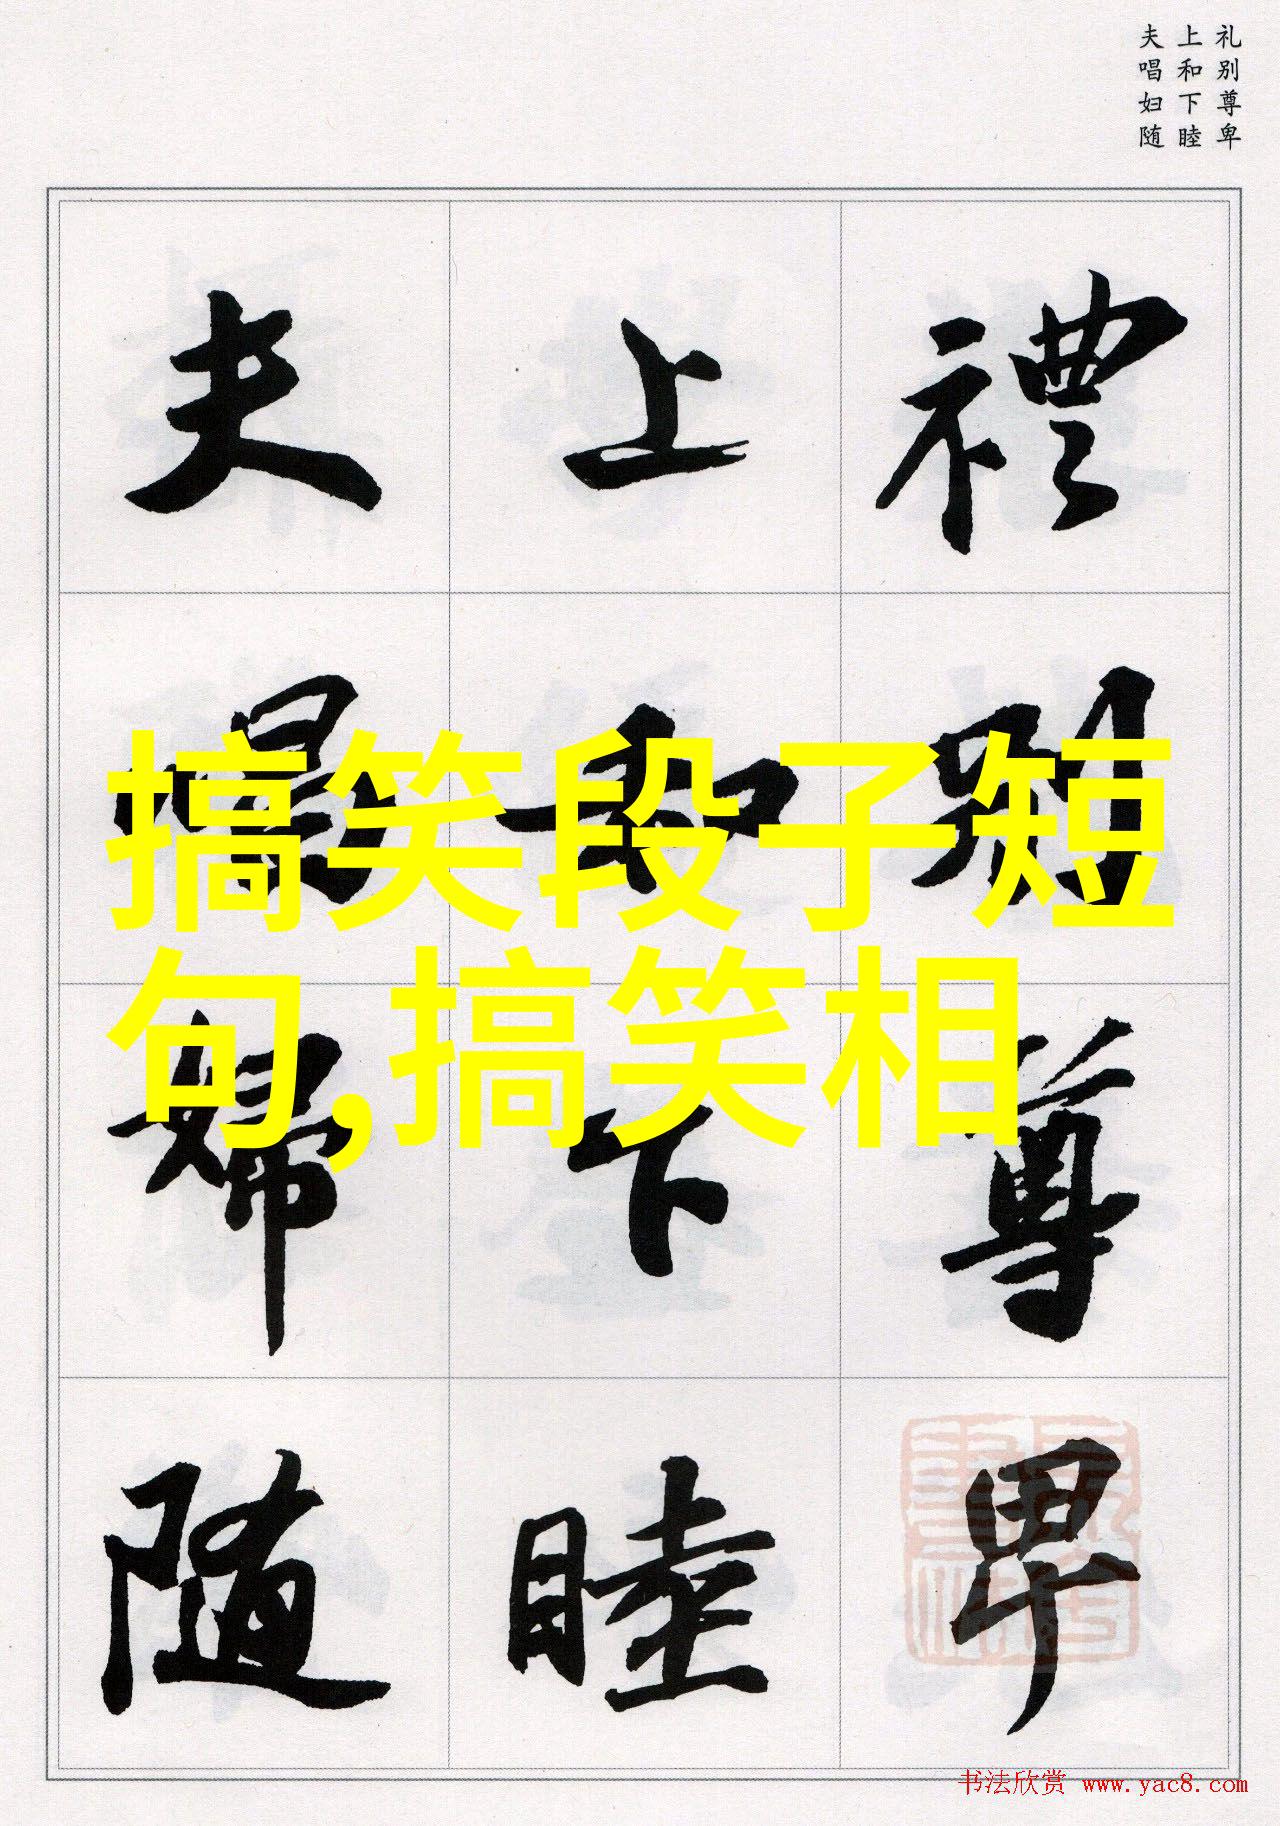 礼别尊卑
上和下睦
夫唱妇随
禮別尊卑
上和下睦
夫唱婦隨
搞笑段子短
句,搞笑相
书法欣赏 www.yac8.com